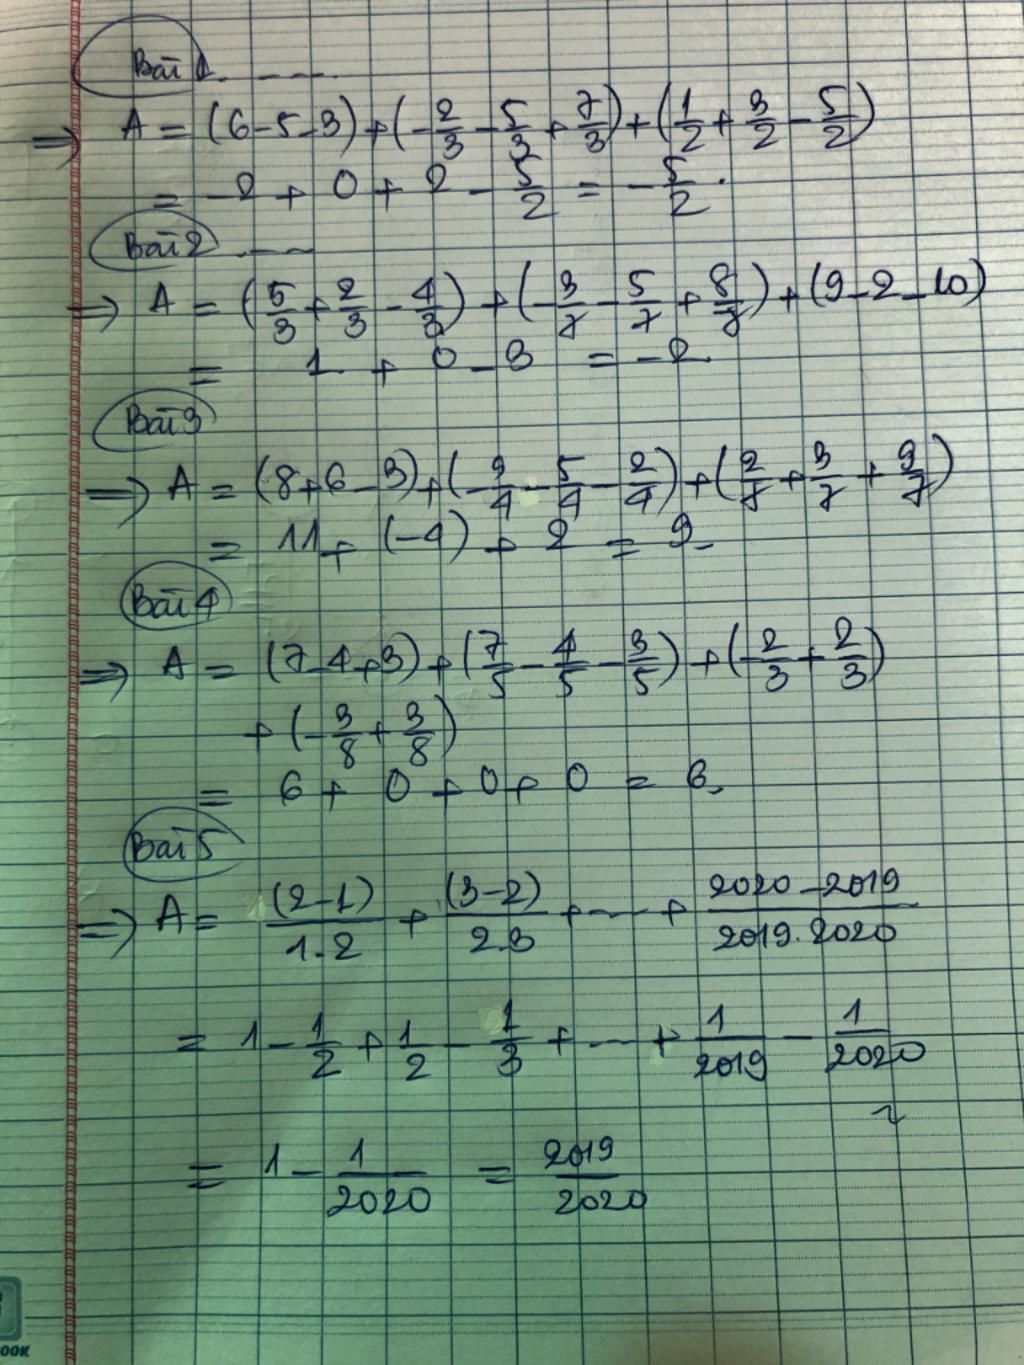 Bài 1. - - - -
=> A = (6-5-3)+(-2/3-5/3+7/3)+(1/2+3/2-5/2)
= -2 + 0 + 2 - 5/2 = -5/2.
Bài 2 - - - -
=> A = (5/3+2/3-4/3)+(-3/7-5/7+8/7)+(9-2-10)
= 1 + 0 - 3 = -2.
Bài 3
=> A = (8+6-3)+(-9/4-5/4-2/4)+(2/7+3/7+9/7)
= 11+ (-4) + 2 = 9.
Bài 4
=> A = (7-4+3)+(7/5-4/5-3/5)+(-2/3+2/3)
+ (-3/8+3/8)
= 6 + 0 + 0 + 0 = 6.
Bài 5
=> A = (2-1)/1.2 + (3-2)/2.3 + --- + 2020-2019/2019.2020
= 1 - 1/2 + 1/2 - 1/3 + --- + 1/2019 - 1/2020
= 1 - 1/2020 = 2019/2020
OOK